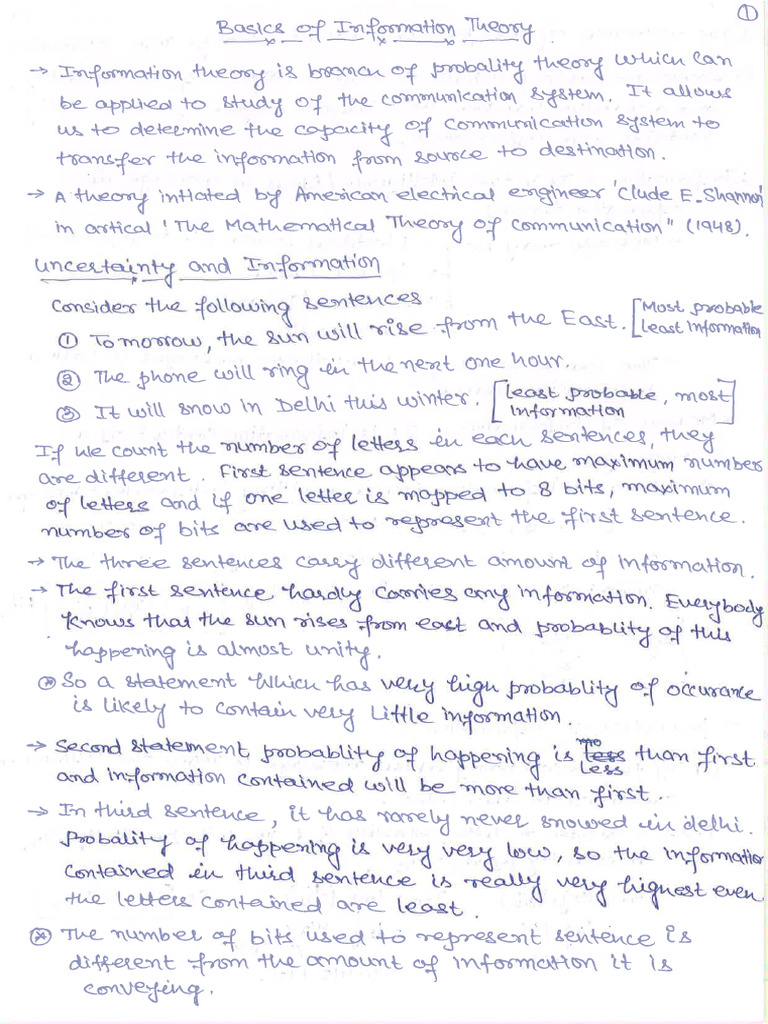 ①
Basics of Information Theory.
→ Information theory is branch of probality theory which can
be applied to study of the communication system. It allows
us to determine the capacity of communication system to
transfer the information from source to destination.
→ A theory intiated by American electrical engineer 'Clude E. Shannon'
in artical 'The Mathematical Theory of Communication" (1948).
Uncertainty and Information
Consider the following sentences
① Tomorrow, the sun will rise from the East. [Most probable
Least Information
② The phone will ring in the next one hour.
③ It will snow in Delhi this winter. [least probable, most
Information]
If we count the number of letters in each sentences, they
are different. First sentence appears to have maximum number
of letters and if one letter is mapped to 8 bits, maximum
number of bits are used to represent the first sentence.
→ The three sentences carry different amount of information.
→ The first sentence hardly carries any information. Everybody
knows that the sun rises from east and probablity of this
happening is almost unity.
⊛ So a statement which has very high probablity of occurance
is likely to contain very little information.
→ Second statement probablity of happening is less than first
and information contained will be more than first.
→ In third sentence, it has rarely never snowed in delhi.
Probality of happening is very very low, so the information
contained in third sentence is really very highest even
the letters contained are least.
⊛ The number of bits used to represent sentence is
different from the amount of information it is
conveying.